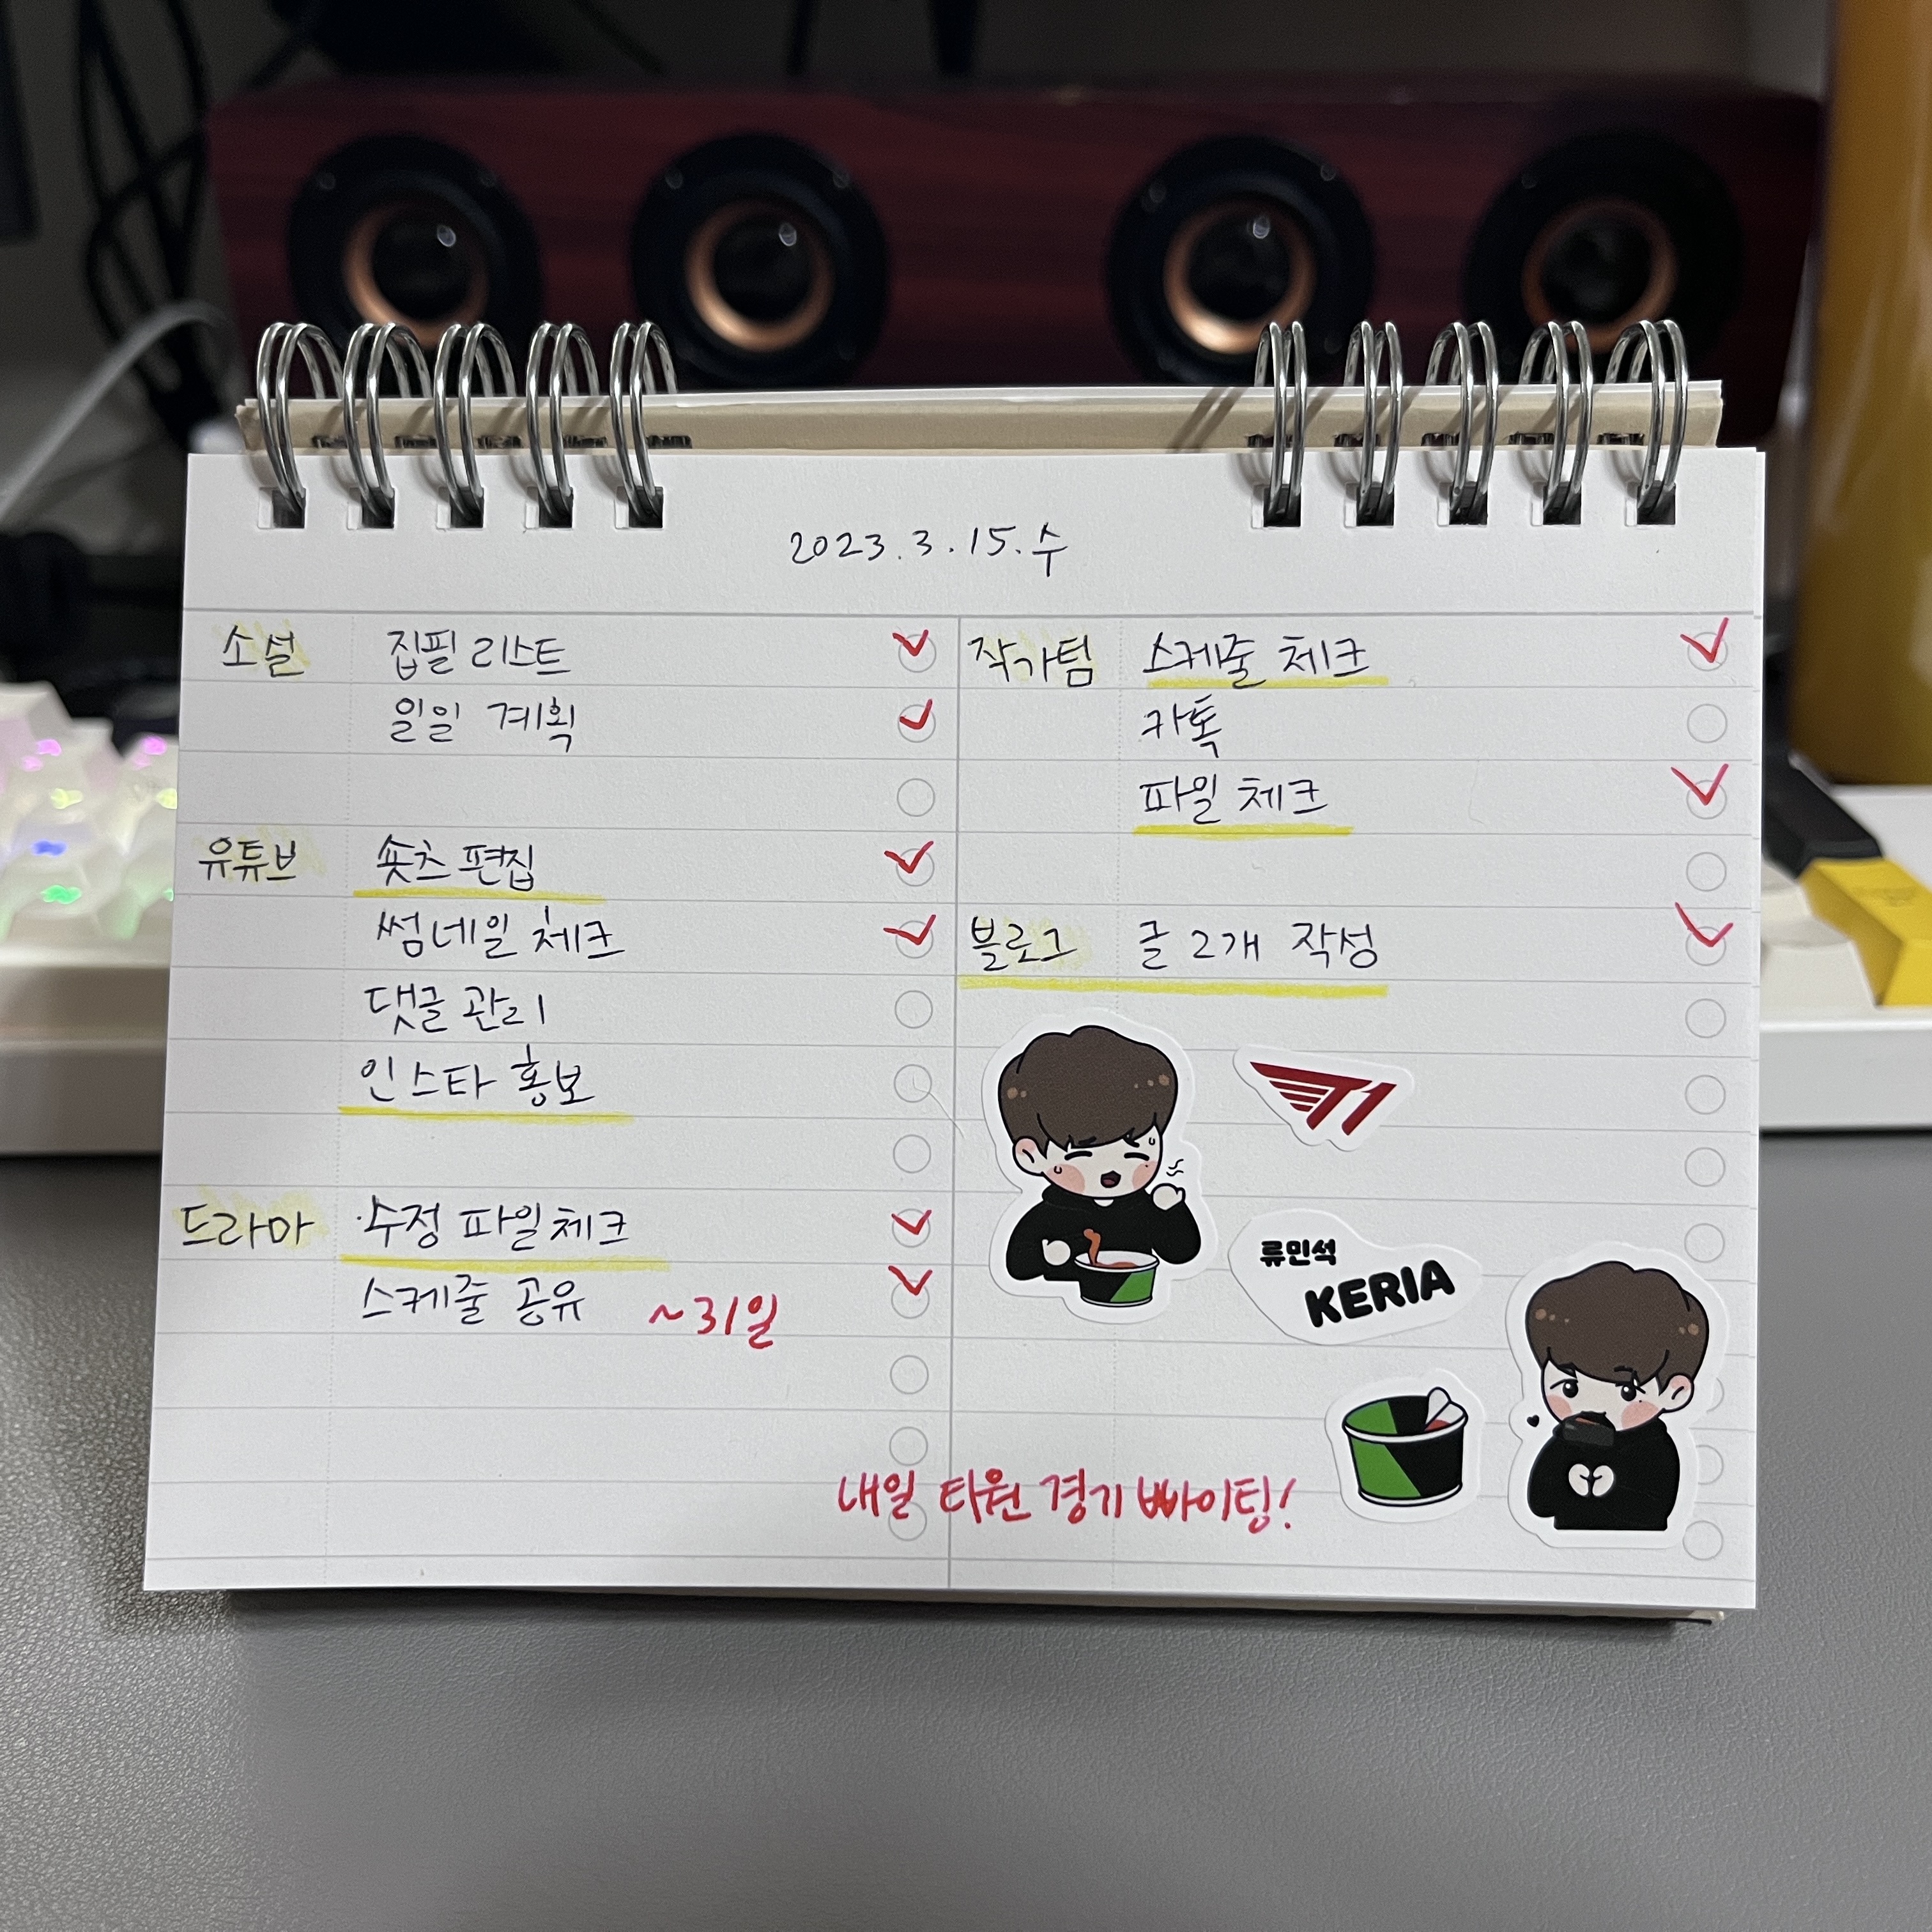 2023.3.15.수
소설 집필 리스트
일일 계획
유튜브 숏츠 편집
썸네일 체크
댓글 관리
인스타 홍보
드라마 수정 파일 체크
스케줄 공유 ~31일
작가팀 스케줄 체크
카톡
파일 체크
블로그 글 2개 작성
T1
류민석
KERIA
내일 티원 경기 빠이팅!